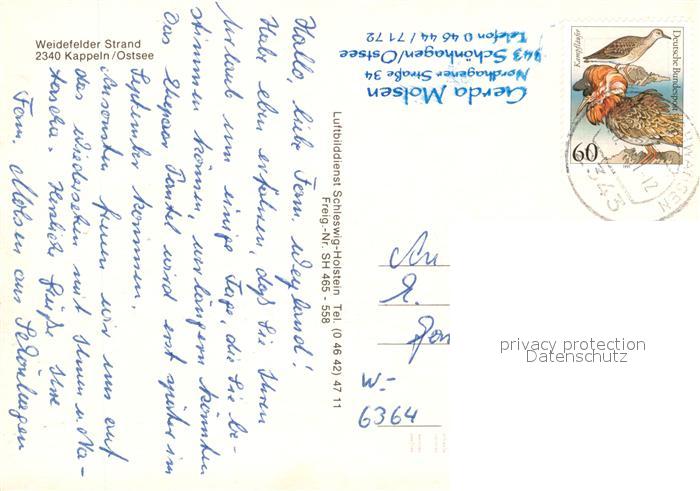 Weidefelder Strand
2340 Kappeln/Ostsee
Hallo, liebe Fam. Weyland!
Habe eben erfahren, daß Sie Ihren
Urlaub um einige Tage, die Sie be-
stimmen können, verlängern könnten
Das Ehepaar wird erst später im
September kommen.
Ansonsten freuen wir uns auf
das Wiedersehen mit Ihnen u. Na-
tascha. Herzliche Grüße Ihre
Fam. Molsen aus Schönhagen
Luftbilddienst Schleswig-Holstein Tel. (0 46 42) 47 11
Freig.-Nr. SH 465 - 558
Gerda Molsen
Nordhagener Straße 34
343 Schönhagen/Ostsee
Telefon 0 46 44 / 71 72
Deutsche Bundespost
Kampfläufer
60
343
An
Fam
W.-
6364
privacy protection
Datenschutz